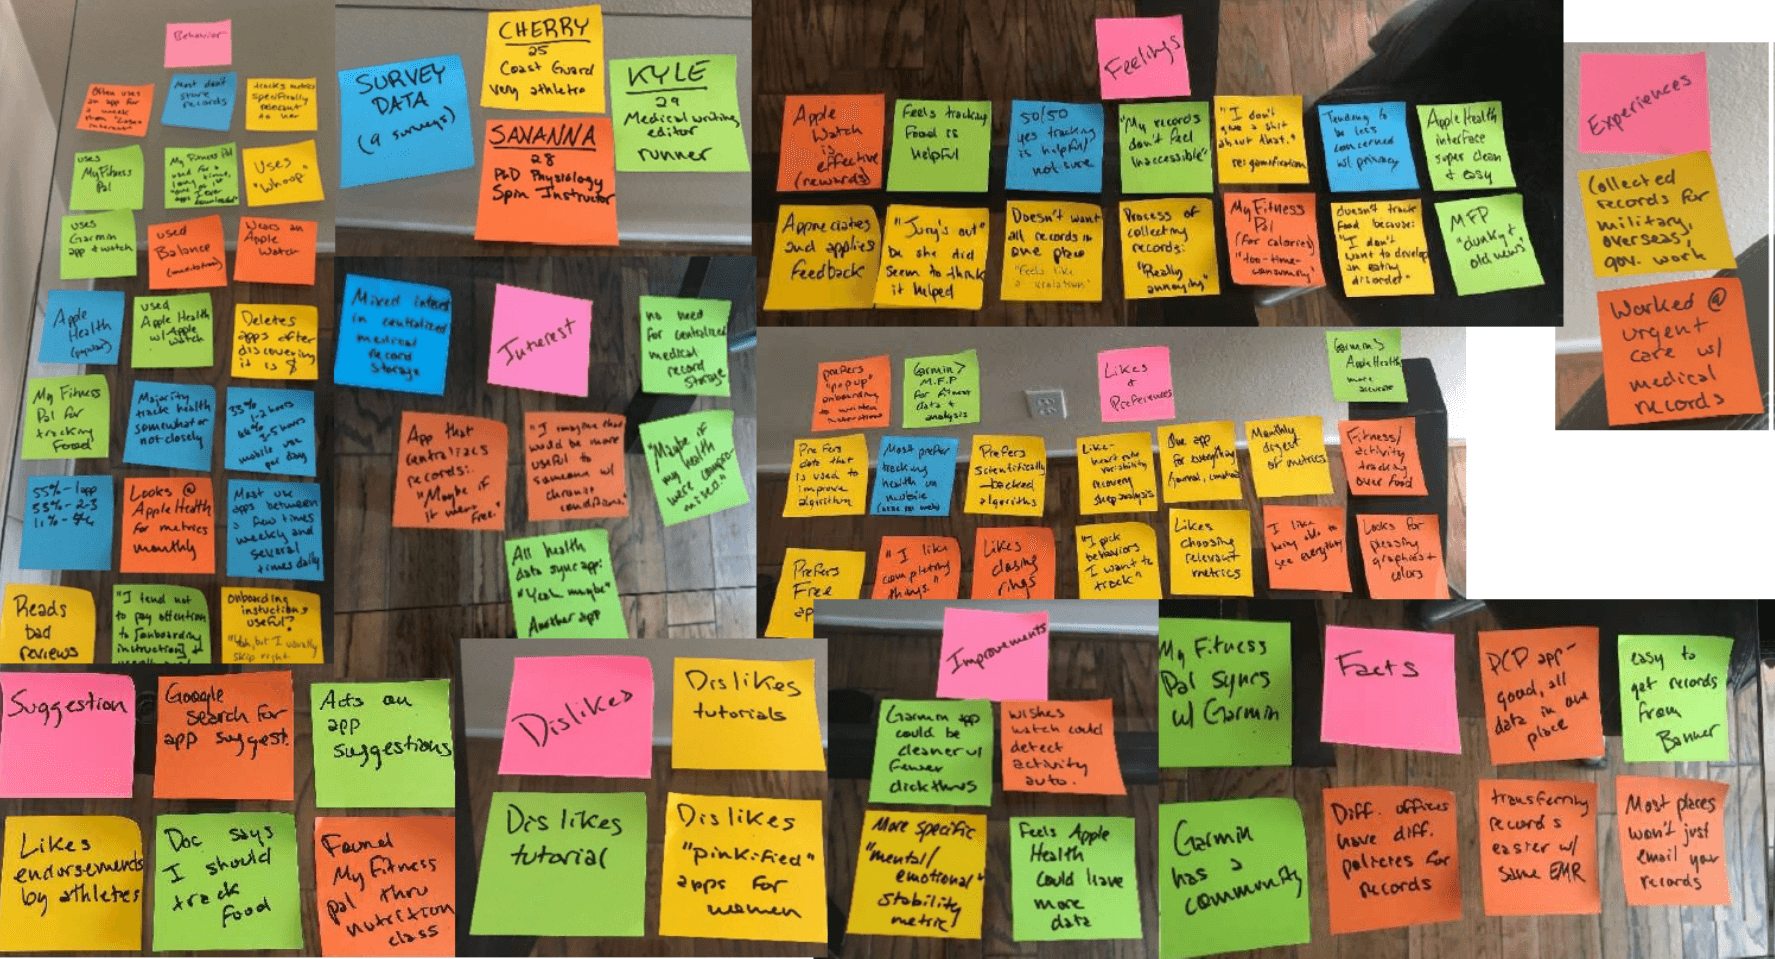 Behavior
Often uses
an app for
a week
then "loses
interest"
Most don't
store
records
tracks metrics
specifically
relevant
to her
uses
MyFitness
Pal
My Fitness Pal
used for a
long time,
apps I ever
downloaded"
Uses
"Whoop"
uses
Garmin
app + watch
used
Balance
(meditation)
Wears an
Apple
Watch
Apple
Health
(popular)
used
Apple Health
w/ Apple
watch
Deletes
apps after
discovering
it is $
My Fitness
Pal for
tracking
Food
Majority
track health
somewhat or
not closely
33%
1-2 hours
66%
3-5 hours
mobile use
per day
55% - 1 app
55% - 2-3
11% - 4+
Looks @
Apple Health
for metrics
monthly
Most use
apps between
a few times
weekly and
several
times daily
Reads
bad
reviews
"I tend not
to pay attention
to [onboarding
instruction] +
onboarding
instructions
useful?
"Yah, but I usually
skip right
SURVEY
DATA
(9 surveys)
CHERRY
25
Coast Guard
very athletic
SAVANNA
28
PhD Physiology
Spin Instructor
KYLE
29
Medical writing
editor
runner
Mixed interest
in centralized
medical
record
storage
Interest
no need
for centralized
medical
record
storage
App that
centralizes
records:
"Maybe if
it were
free."
"I imagine that
would be more
useful to
someone w/
chronic
conditions."
"Maybe if
my health
were compro-
mised."
All health
data sync app:
"Yeah maybe"
Another app
Feelings
Apple
Watch
is
effective
(rewards)
Feels tracking
Food is
helpful
50/50
yes tracking
is helpful/
not sure
"My records
don't feel
inaccessible"
"I don't
give a shit
about that."
re: gamification
Tending to
be less
concerned
w/ privacy
Apple Health
interface
super clean
+ easy
Appreciates
and applies
feedback
"Jury's out"
bc she did
seem to think
it helped
Doesn't want
all records in
one place
"Feels like
a violation"
Process of
collecting
records:
"Really
annoying"
My Fitness
Pal
(for calories)
"too-time-
consuming"
doesn't track
food because:
"I don't
want to develop
an eating
disorder"
MFP
"clunky +
old news"
Experiences
Collected
records for
military,
overseas,
gov. work
Worked @
urgent
care w/
medical
records
prefers
"popup"
onboarding
to written
instructions
Garmin >
M.F.P
for fitness
data +
analysis
Likes
+
Preferences
Garmin >
Apple Health
more
accurate
Prefers
data that
is used to
improve
algorithm
Most prefer
tracking
health on
mobile
(some no web)
Prefers
Scientifically
-backed
algorithms
Like-
heart rate
variability
recovery
sleep analysis
One app
for everything
Monthly
digest
of metrics
Fitness/
activity
tracking
over food
Prefers
Free
ap
"I like
completing
things."
Likes
closing
rings
"I pick
behaviors
I want to
track"
Likes
choosing
relevant
metrics
I like
being able to
see everything
Looks for
pleasing
graphics +
colors
Suggestion
Google
search for
app suggest.
Acts on
app
suggestions
Likes
endorsements
by athletes
Doc says
I should
track
food
Found
My Fitness
pal thru
nutrition
class
Dislikes
Dislikes
tutorials
Dislikes
tutorial
Dislikes
"pinkified"
apps for
women
Improvements
Garmin app
could be
cleaner w/
fewer
clickthrus
wishes
watch could
detect
activity
auto.
More specific
"mental/
emotional"
stability
metric
Feels Apple
Health
could have
more
data
My Fitness
Pal syncs
w/ Garmin
Facts
PCP app-
good, all
data in one
place
easy to
get records
from
Banner
Garmin
has a
community
Diff. offices
have diff.
policies for
records
transferring
records
easier w/
same EMR
Most places
won't just
email your
records